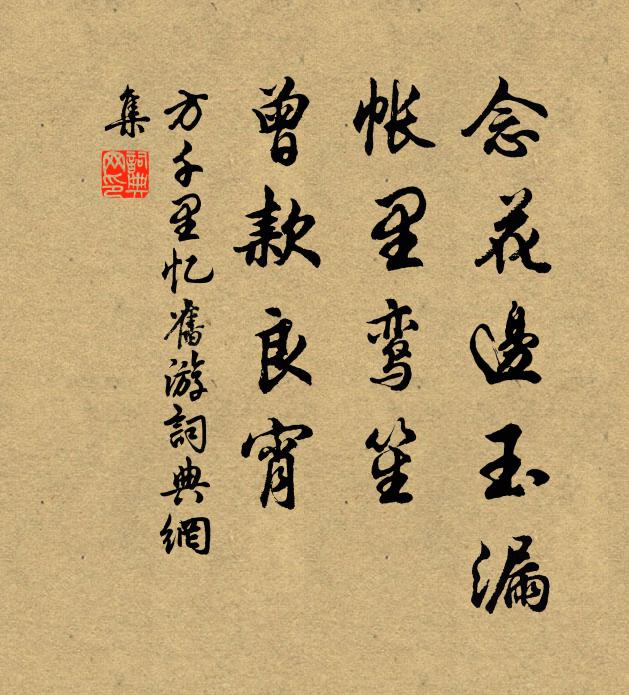 念花邊玉漏
帐里鸾笙
曾款良宵
方千里忆舊游詞典網
集
詞典网印